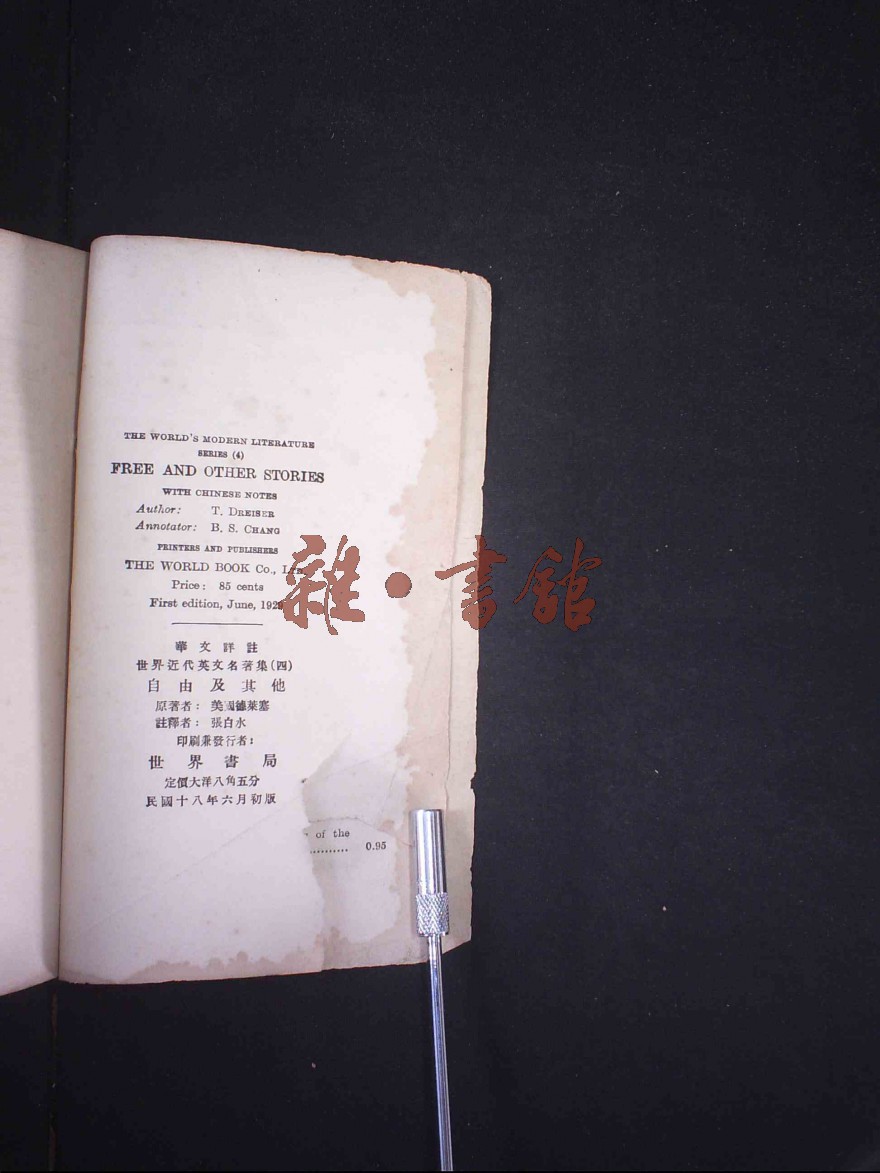 THE WORLD'S MODERN LITERATURE
SERIES (4)
FREE AND OTHER STORIES
WITH CHINESE NOTES
Author: T. DREISER
Annotator: B. S. CHANG
PRINTERS AND PUBLISHERS
THE WORLD BOOK Co., LTD.
Price: 85 cents
First edition, June, 1929
華文詳註
世界近代英文名著集(四)
自由及其他
原著者：美國德萊塞
註釋者：張白水
印刷兼發行者：
世界書局
定價大洋八角五分
民國十八年六月初版
of the
.......... 0.95
雜·書館